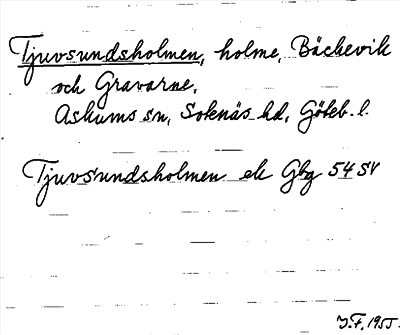 Tjuvsundsholmen, holme, Bäckevik
och Gravarne,
Askums sn, Sotenäs hd, Göteb. l.
Tjuvsundsholmen ek Gbg 54 SV
J.F. 1955.